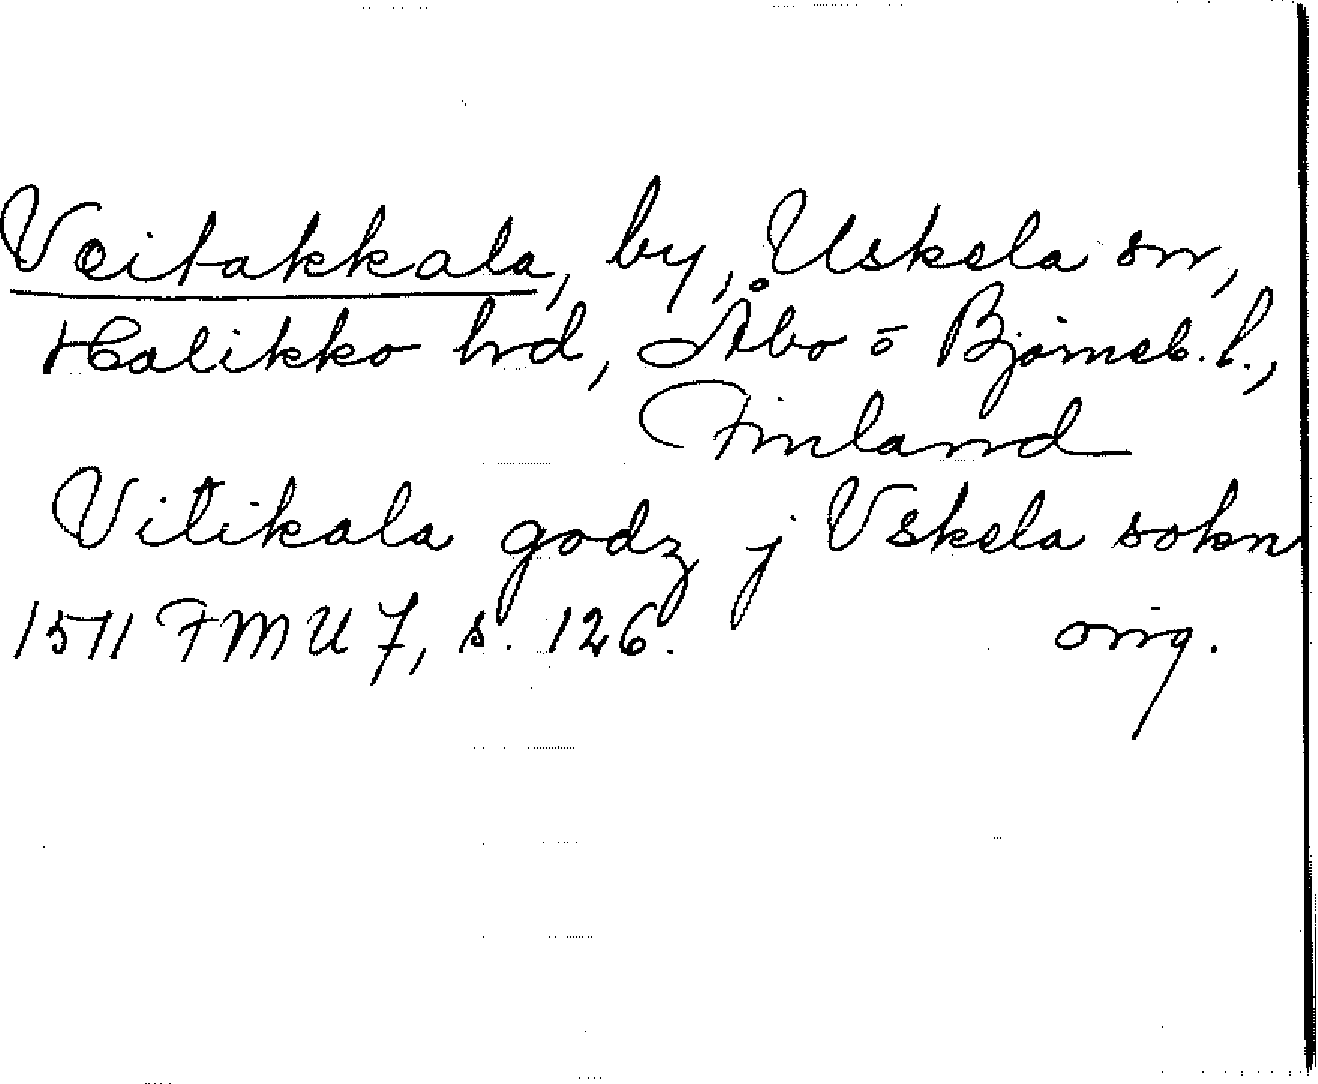 Veitakkala, by, Uskela sn,
Halikko hrd, Åbo o Björneb. l.,
Finland
Vitikala godz j Vskela sokn
1511 FMU 7, s. 126. orig.